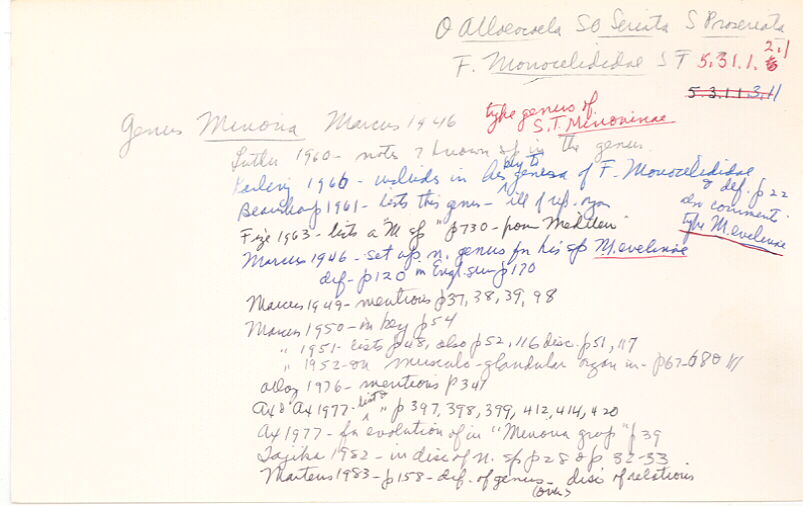 O Alloeocoela SO Seriata S Proseriata
F. Monocelididae S T 5.31.1. 2.1
5.3.1.1.3.11
Genus Minona Marcus 1946
type genus of
S.T. Minoninae
Luther 1960 - notes 7 known sp in the genus
Karling 1966 - includes in key to genera of F. Monocelididae
& def. p 22
Beauchamp 1961 - lists this genus - ill of rep. organ
also comment.
type M. evelinae
Fize 1963 - lists a "M sp" p 730 - from Mediterr
Marcus 1946 - set up n. genus for his sp M. evelinae
def - p 120 in Engl. sum p 170
Marcus 1949 - mentions p 37, 38, 39, 98
Marcus 1950 - in key p 54
" 1951 - lists p 48, also p 52, 116 disc. p 51, 117
" 1952 - on musculo-glandular organ in - p 67-68
Ax & Ax 1977 - lists " p 397, 398, 399, 412, 414, 420
Ax 1977 - for evolution of in "Minona group" p 39
Tajika 1982 - in disc of n. sp p 28 & p 32-33
Martens 1983 - p 158 - def. of genus - disc of relations
(over)